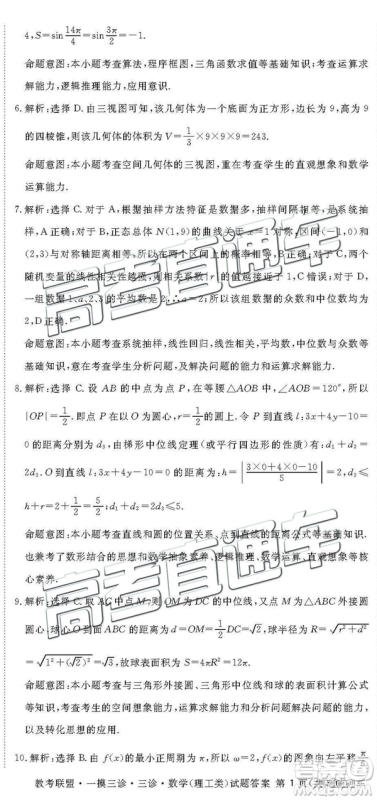 4,S=sin 14π/4=sin 3π/2=-1.
命题意图:本小题考查算法,程序框图,三角函数求值等基础知识;考查运算求
解能力,逻辑推理能力,应用意识.
6.解析:选择 D.由三视图可知,该几何体的底面为正方形,边长为 9,高为 9
的四棱锥,则该几何体的体积为 V=1/3×9×9×9=243.
命题意图:本小题考查空间几何体的三视图,重点考查学生的直观想象和数学
运算能力.
7.解析:选择 C.对于 A,根据抽样方法特征是数据多,抽样间隔相等,是系统抽
样,A 正确;对于 B,正态总体 N(1,9)的曲线关于 x=1 对称,区间(-1,0)和
(2,3)与对称轴距离相等,所以在两个区间上的概率相等,B 正确;对于 C,两个
随机变量的线性相关性越强,则相关系数|r|的值越接近于 1,C 错误;对于 D,
一组数据 1,a,2,3 的平均数是 2,∴a=2;所以该组数据的众数和中位数均为
2,D 正确.
命题意图:本小题考查系统抽样,线性回归,线性相关,平均数,中位数与众数等
基础知识,意在考查学生分析问题,及解决问题的能力和运算求解能力.
8.解析:选择 C.设 AB 的中点为点 P,在等腰△AOB 中,∠AOB=120°,所以
|OP|=1/2.即点 P 在以 O 为圆心,r=1/2的圆上.令 P 到直线 l:3x+4y-10=0
的距离为 d,由梯形中位线定理(或平行四边形的性质)有:d₁+d₂=
2d.O 到直线 l:3x+4y-10=0 的距离为:h=|(3×0+4×0-10)/5|=2,d≤
h+r=2+1/2=5/2;d₁+d₂=2d≤5.
命题意图:本小题考查直线和圆的位置关系、点到直线的距离公式等基础知识,
也兼考了数形结合的思想和数学抽象素养、逻辑推理、数学建模、数学运算等核
心素养.
9.解析:选择 C.取 AC 中点 M,则 OM 为 DC 的中位线,又 OM 过 ABC 外接圆
圆心,球心 O 到面 ABC 的距离为 OM=1/2DC=√2,球半径为 R=√(r²+d²)
=√(1²+(√2)²)=√3,故球表面积为 S=4πR²=12π.
10.解析:选择 B.由 f(x)的最小正周期为 π,所以 ω=2,f(x)的图象向左平移
教考联盟·一摸三诊·三诊·数学(理工类)试题答案 第 1 页
高考直通车
高考直通车